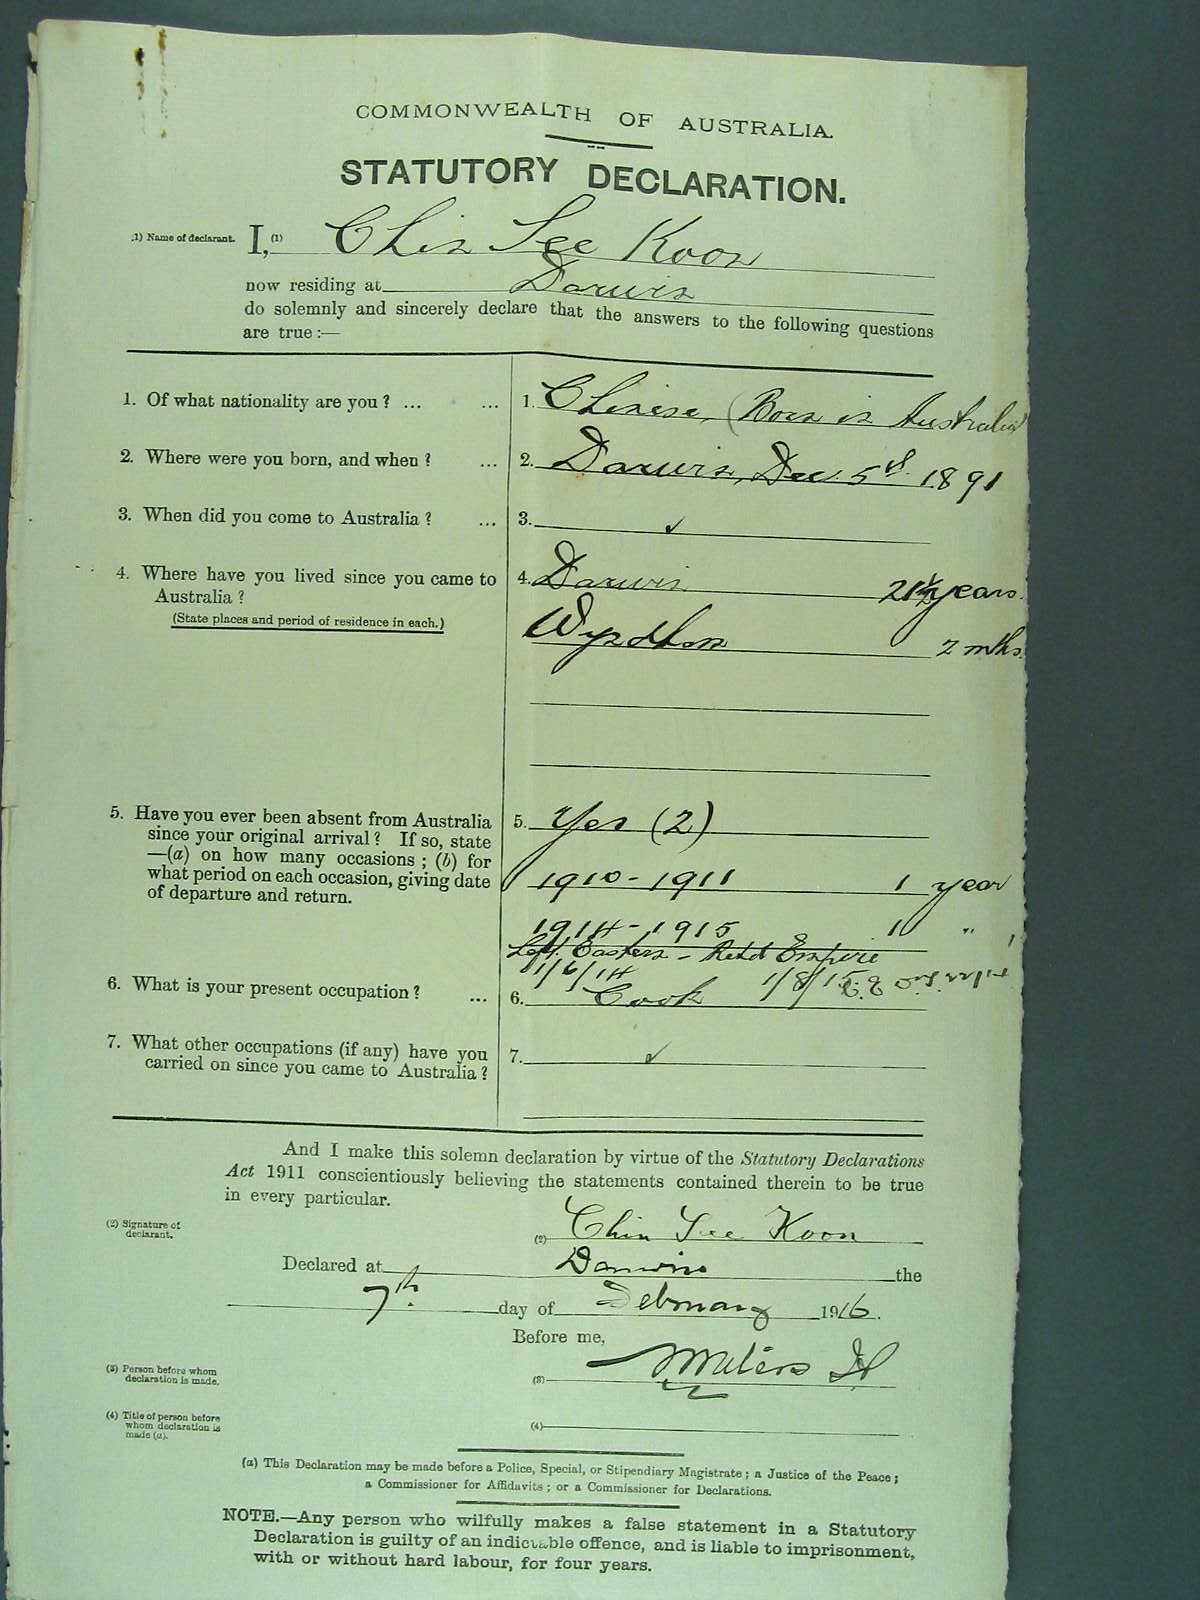 COMMONWEALTH OF AUSTRALIA.
STATUTORY DECLARATION.
(1) Name of declarant. I, (1) Chin See Koon
now residing at Darwin
do solemnly and sincerely declare that the answers to the following questions
are true :—
1. Of what nationality are you ? ... ... 1. Chinese, (Born in Australia)
2. Where were you born, and when ? ... 2. Darwin, Dec. 5th. 1891
3. When did you come to Australia ? ... 3. ✓
4. Where have you lived since you came to 4. Darwin 21½ years.
Australia ?
(State places and period of residence in each.) Wyndham 2 mths.
5. Have you ever been absent from Australia 5. Yes (2)
since your original arrival ? If so, state
—(a) on how many occasions ; (b) for
what period on each occasion, giving date 1910 - 1911 1 year
of departure and return.
1914 - 1915 1 "
Left Eastern - Retd Empire
1/6/14 1/8/15
6. What is your present occupation ? ... 6. Cook
7. What other occupations (if any) have you 7. ✓
carried on since you came to Australia ?
And I make this solemn declaration by virtue of the Statutory Declarations
Act 1911 conscientiously believing the statements contained therein to be true
in every particular.
(2) Signature of
declarant. (2) Chin See Koon
Declared at Darwin the
7th. day of February 1916.
Before me,
(3) Person before whom
declaration is made. (3)
(4) Title of person before
whom declaration is
made (a). (4)
(a) This Declaration may be made before a Police, Special, or Stipendiary Magistrate ; a Justice of the Peace ;
a Commissioner for Affidavits ; or a Commissioner for Declarations.
NOTE.—Any person who wilfully makes a false statement in a Statutory
Declaration is guilty of an indictable offence, and is liable to imprisonment,
with or without hard labour, for four years.